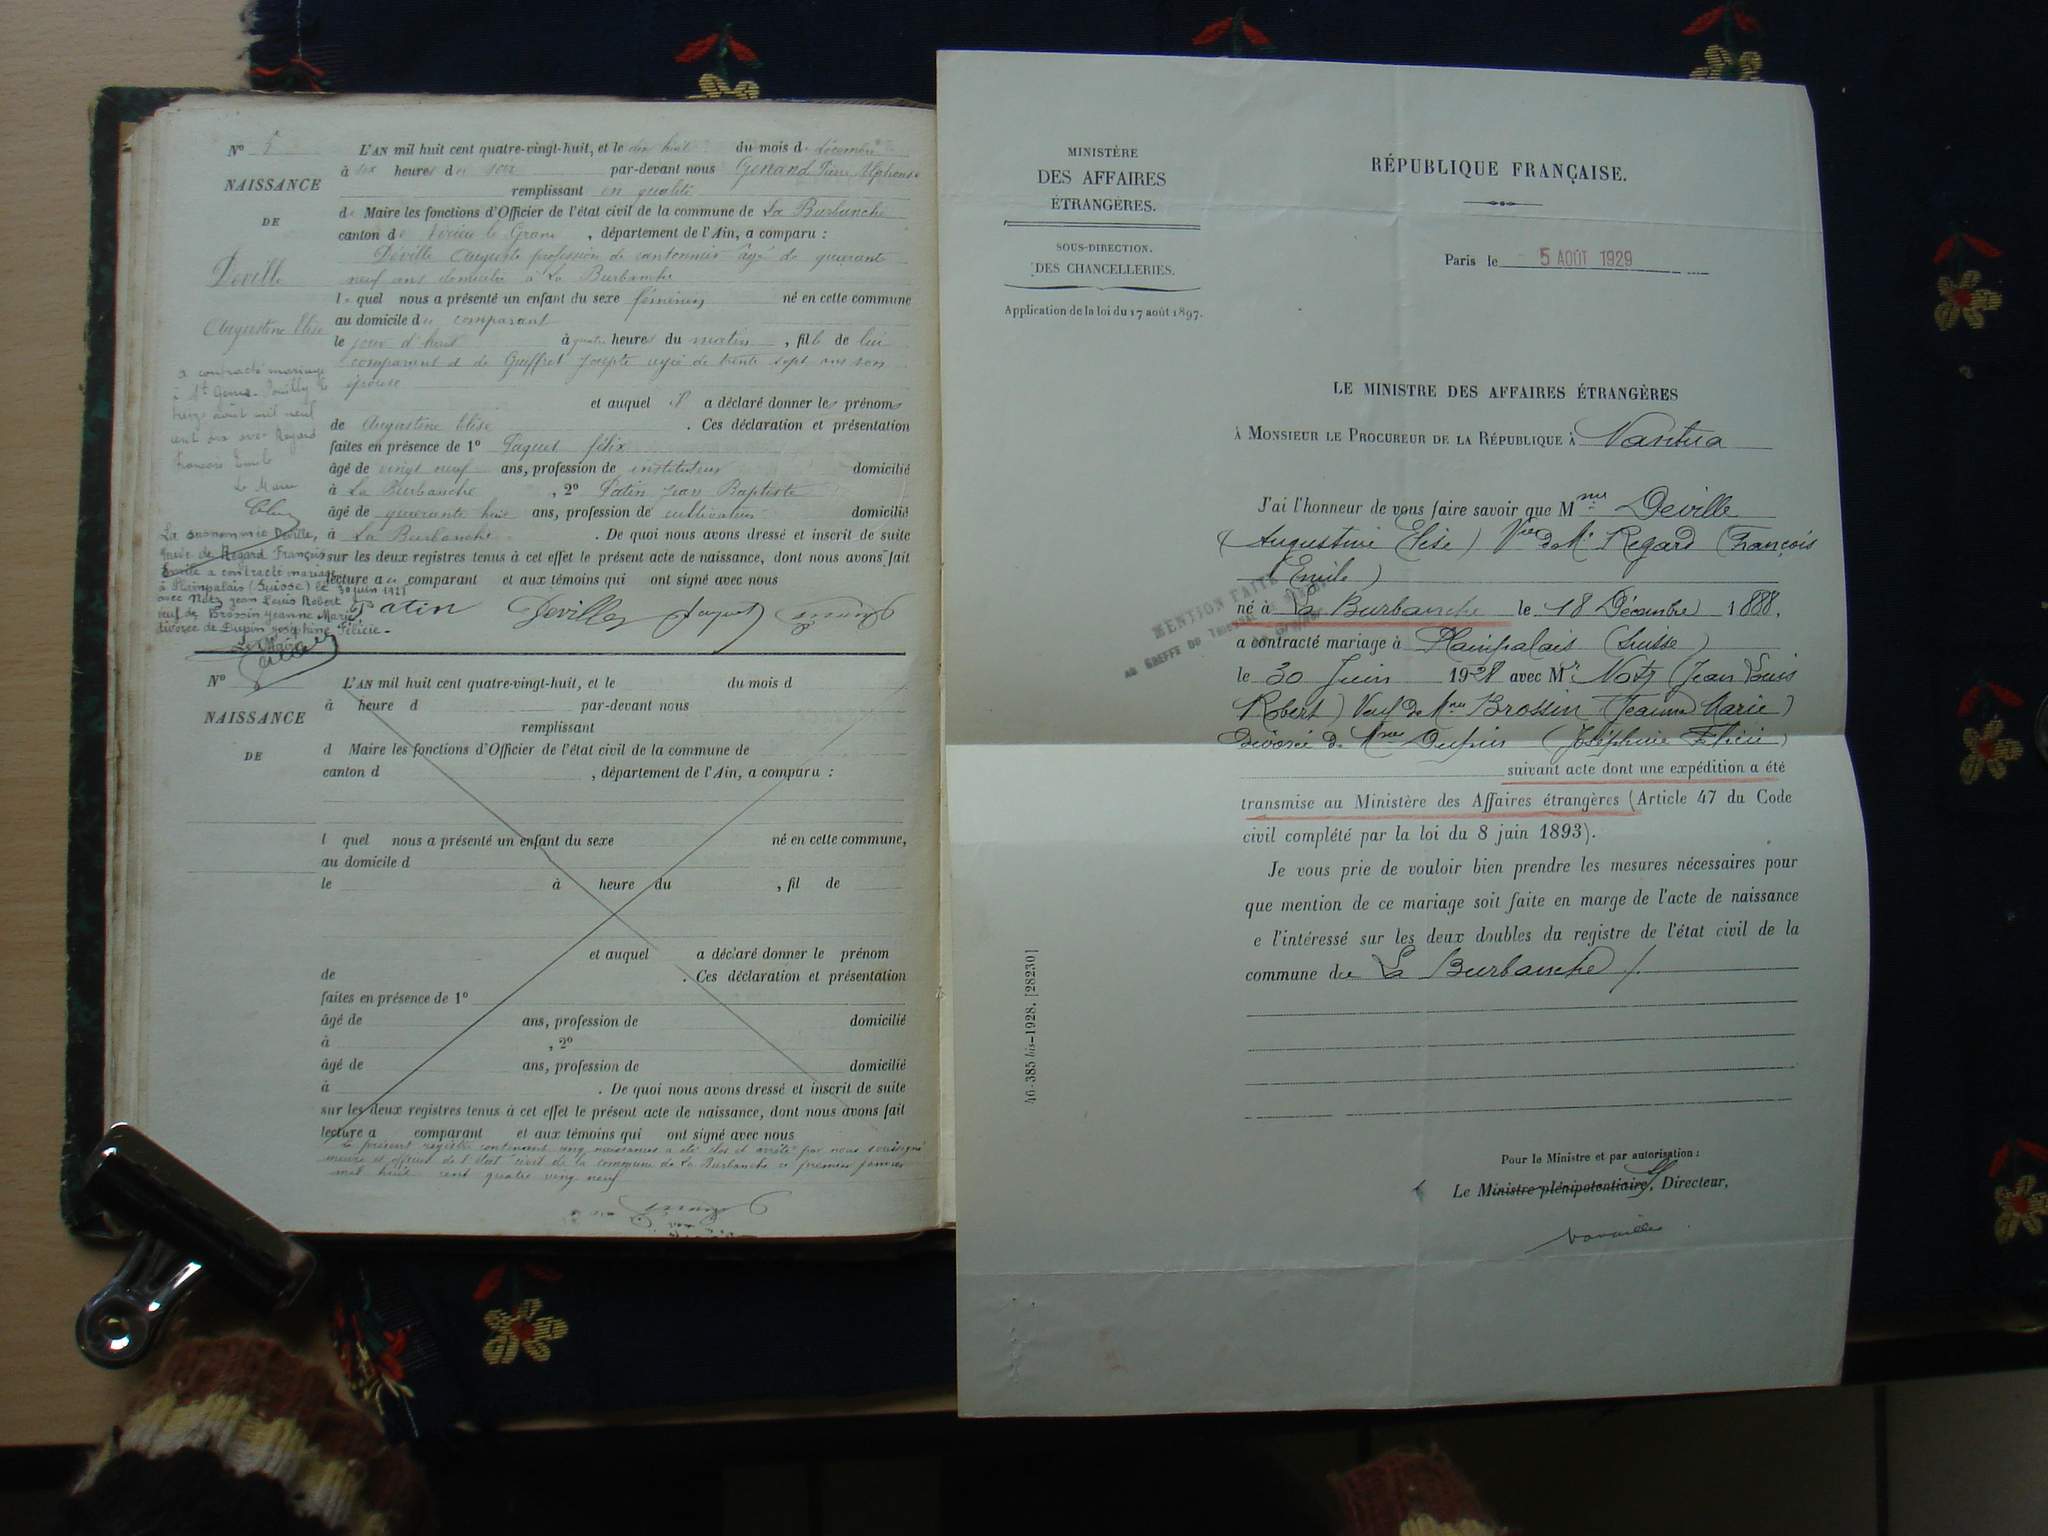 N° 5
NAISSANCE
DE
Deville
Augustine Elise
a contracté mariage
à St Genis-Pouilly le
treize août mil neuf
cent dix avec Regard
François Emile
Le Maire
La susnommée Deville,
veuve de Regard François
Emile a contracté mariage
à Plainpalais (Suisse) le 30 juin 1928
avec Notz Jean Louis Robert
veuf de Brossin Jeanne Marie
divorcé de Dupin Joséphine Félicie.
Le Maire
L'AN mil huit cent quatre-vingt-huit, et le dix huit du mois de décembre
à six heures du soir par-devant nous Genand Pierre Alphonse
remplissant en qualité
de Maire les fonctions d'Officier de l'état civil de la commune de La Burbanche
canton de Virieu le Grand, département de l'Ain, a comparu :
Deville Auguste profession de cantonnier âgé de quarante
neuf ans domicilié à La Burbanche
lequel nous a présenté un enfant du sexe féminin né en cette commune
au domicile du comparant
le jour d'hui à quatre heures du matin, fille de lui
comparant et de Guiffret Josepte agée de trente sept ans son
épouse
et auquel il a déclaré donner les prénoms
de Augustine Elise. Ces déclaration et présentation
faites en présence de 1° Paquet félix
âgé de vingt neuf ans, profession de instituteur domicilié
à La Burbanche, 2° Patin Jean Baptiste
âgé de quarante huit ans, profession de cultivateur domicilié
à La Burbanche. De quoi nous avons dressé et inscrit de suite
sur les deux registres tenus à cet effet le présent acte de naissance, dont nous avons fait
lecture au comparant et aux témoins qui ont signé avec nous
Patin Deville Paquet
N°
NAISSANCE
DE
L'AN mil huit cent quatre-vingt-huit, et le du mois d
à heure d par-devant nous
remplissant
d Maire les fonctions d'Officier de l'état civil de la commune de
canton d , département de l'Ain, a comparu :
l quel nous a présenté un enfant du sexe né en cette commune,
au domicile d
le à heure du , fil de
et auquel a déclaré donner le prénom
de . Ces déclaration et présentation
faites en présence de 1°
âgé de ans, profession de domicilié
à , 2°
âgé de ans, profession de domicilié
à . De quoi nous avons dressé et inscrit de suite
sur les deux registres tenus à cet effet le présent acte de naissance, dont nous avons fait
lecture a comparant et aux témoins qui ont signé avec nous
Le présent registre contenant cinq naissances a été clos et arrêté par nous soussigné
maire et officier de l'état civil de la commune de La Burbanche ce premier janvier
mil huit cent quatre ving neuf
MINISTÈRE
DES AFFAIRES
ÉTRANGÈRES.
SOUS-DIRECTION.
DES CHANCELLERIES.
Application de la loi du 17 août 1897.
RÉPUBLIQUE FRANÇAISE.
Paris le 5 AOÛT 1929
LE MINISTRE DES AFFAIRES ÉTRANGÈRES
À MONSIEUR LE PROCUREUR DE LA RÉPUBLIQUE À Nantua
J'ai l'honneur de vous faire savoir que Mme Deville
(Augustine Elise) Vve de Mr Regard (François
Emile)
MENTION FAITE
AU GREFFE DU TRIBUNAL
né à La Burbanche le 18 Décembre 1888,
a contracté mariage à Plainpalais (Suisse)
le 30 Juin 1928 avec Mr Notz (Jean Louis
Robert) Veuf de Mme Brossin (Jeanne Marie)
divorcé de Mme Dupin (Joséphine Félicie)
suivant acte dont une expédition a été
transmise au Ministère des Affaires étrangères (Article 47 du Code
civil complété par la loi du 8 juin 1893).
Je vous prie de vouloir bien prendre les mesures nécessaires pour
que mention de ce mariage soit faite en marge de l'acte de naissance
e l'intéressé sur les deux doubles du registre de l'état civil de la
commune de La Burbanche /.
46-385 bis-1928. [28230]
Pour le Ministre et par autorisation :
Le Ministre plénipotentiaire, Directeur,